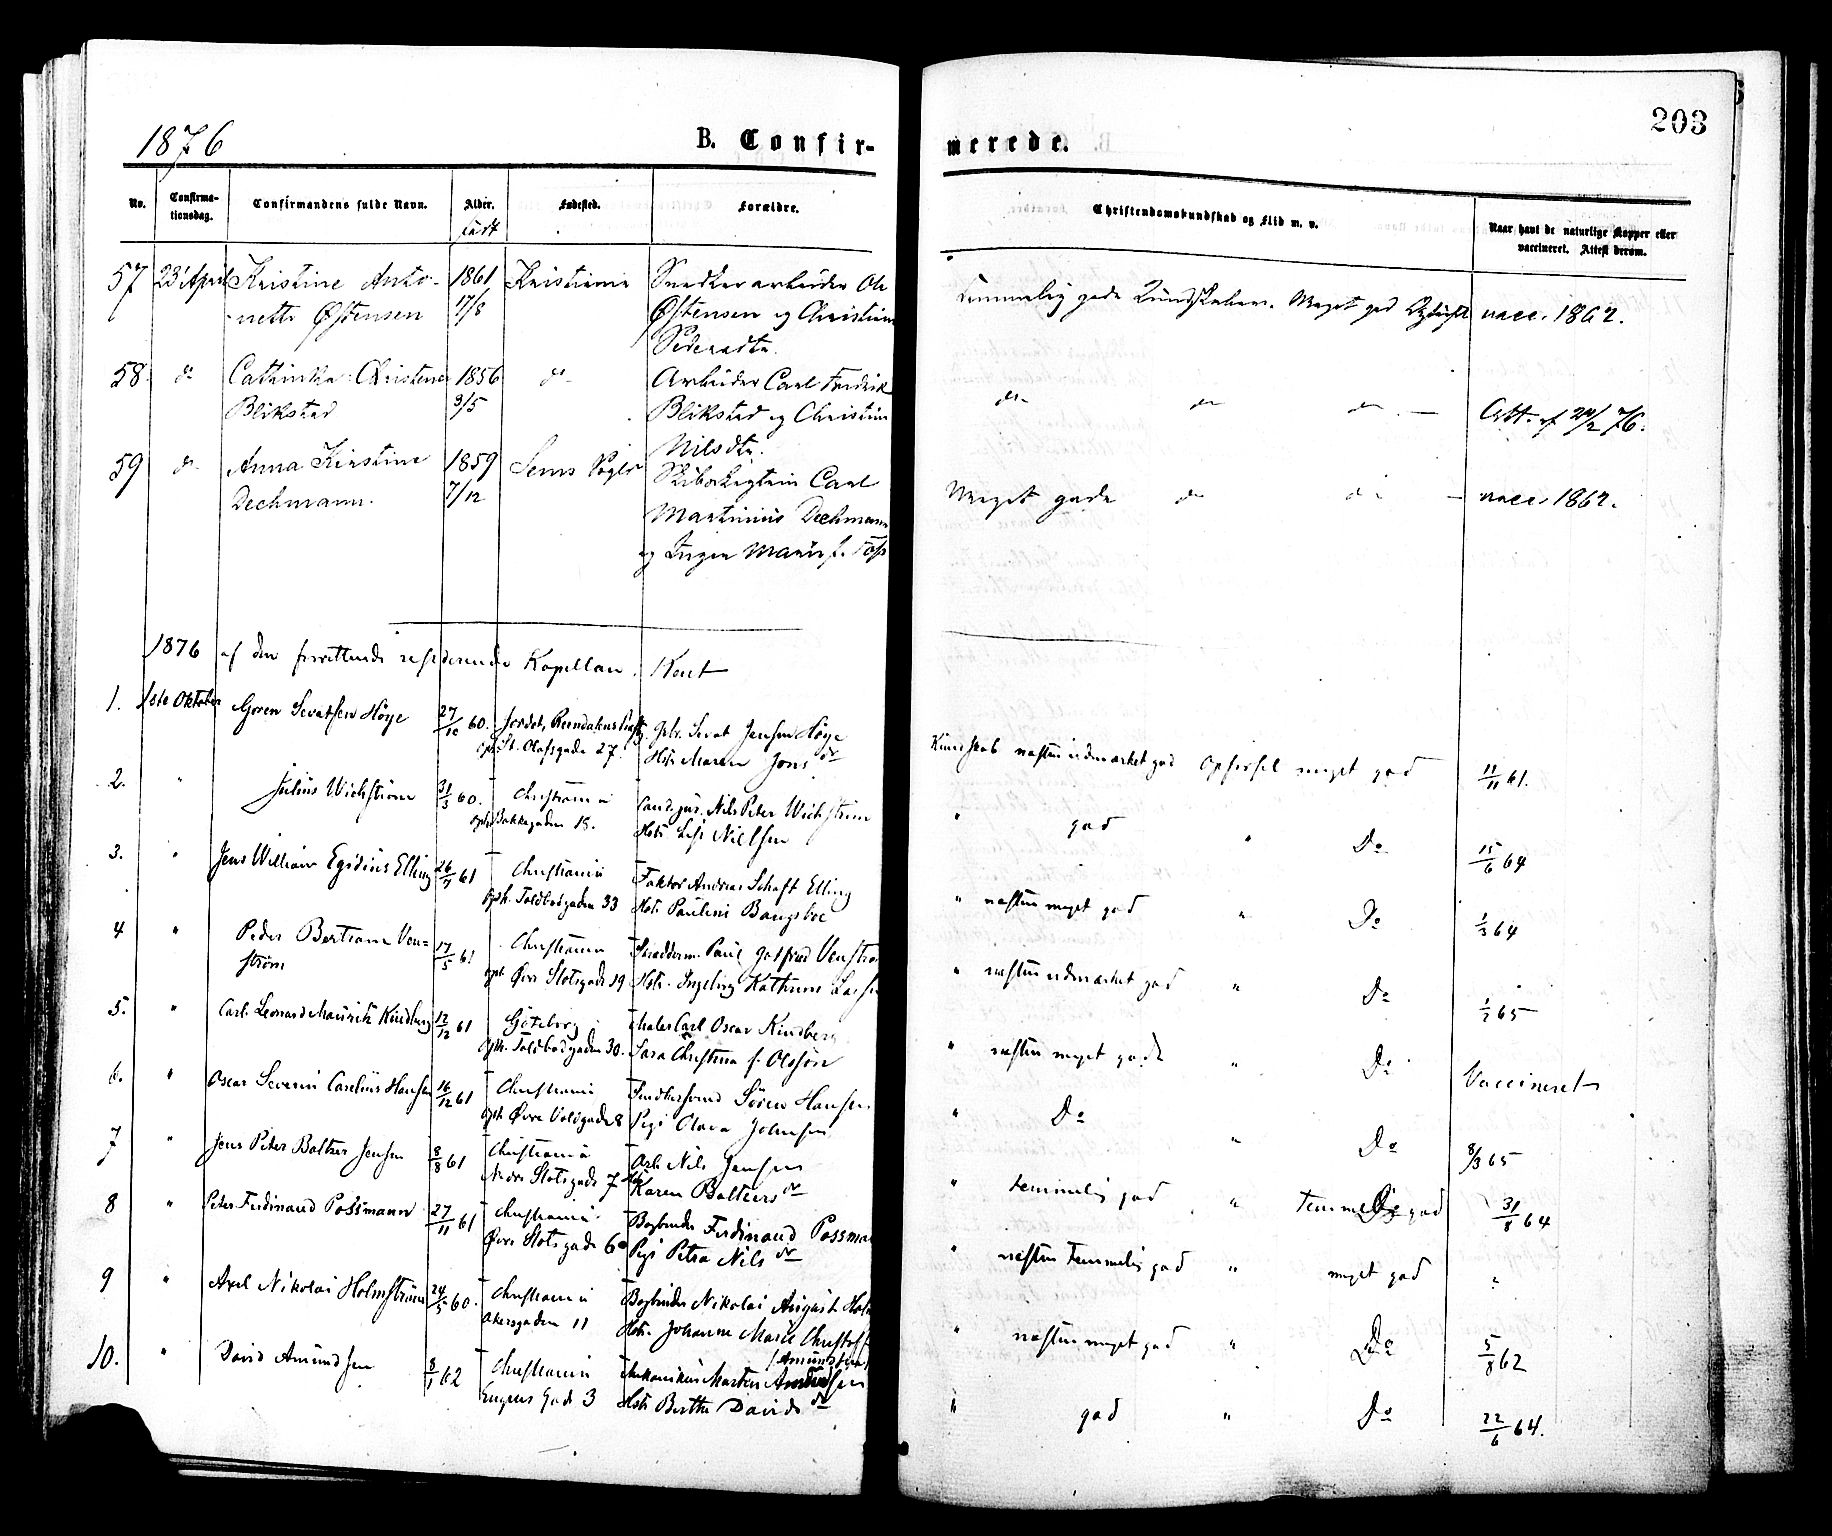 1876
B. Confir-
No.
Confirma-
tionsdag.
Confirmandens fulde Navn.
Alder.
født
Fødested.
Forældre.
57 23' April Kristine Anto- 1861 Kristiania Snedkerarbeider Ole
nette Østensen 17/8 Østensen og Christine
Pedersdtr.
58 do Cathinka Christene 1856 do Arbeider Carl Fredrik
Blikstad 9/5 Blikstad og Christine
Nilsdtr.
59 do Anna Kirstine 1859 Sems Carl
Dechmann. 7/12 Martinius Dechmann
og Inger Marie f. Foss
1876 af den forrettende residerende Kapellan, Kent
1. 1ste Oktober Goren Sevatsen Höye 27/10 60. Jordet,
oph. St. Olafsgade 27. Sevat Jensen Höye
Hstr. Maren Jonsdr
2. " Julius Wichstrøm 31/3 60. Christiania Nils Peter Wichstrøm
oph. Bakkegaden 15. Hstr. Nielsen
3. " Jens William Egidius Elling 26/7 61 Christiania Faktor Andreas Schaft Elling
oph. Toldbodgaden 33 Hstr. Pauline Bangsboe
4 " Peder Bertram Ven= 17/5 61 Christiania Skrædderm. Paul Gotfred Venstrøm
strøm oph. Øvre Slotsgade 19 Hstr. Ingeborg Kathrine
5. " Carl Leonard Mauritz Kindberg 12/12 61 Göteborg Maler Carl Oscar Kindberg
oph. Toldbodgaden 30. Sara Christina f. Olsson
6. " Oscar Severin Carelius Hansen 16/12 61 Christiania Søren Hansen
oph. Øvre Voldgade 8 Pige Olava Johnsen
7 " Jens Peter Baltzer Jensen 8/8 61 Christiania Arb. Nils Jensen
Nedre Slotsgade 7 Hstr Karen Baltzersdr
8 " Peter Ferdinand Possmann 27/11 61 Christiania Bogbinder Ferdinand Possmann
Øvre Slotsgade 6 Pige Petra Nilsdr
9 " Axel Nikolai Holmstrøm 24/5 60. Christiania Bogbinder Nikolai August Holm
Akersgaden 11 Hstr. Johanne Marie
10. " David Amundsen 8/1 62 Christiania (Amundsen)
Mekanikus Morten
Eugens Gade 3 Hstr Berthe Davidsdr
203
merede.
Christendomskundskab og Flid m. v.
Naar havt de naturlige Kopper eller
vaccineret. Attest derom.
Temmelig gode Kundskaber. Meget god Opførsel vacc. 1862.
do do do Att. af 24/2 76.
Meget gode do do vacc. 1862.
Kundskab næsten udmærket god Opførsel meget god 11/11 61.
" god " Do 15/6 64
" næsten meget god " Do 1/3 64
" næsten udmærket god " Do 1/7 65
" næsten meget gode " Do Vaccineret
" Do " Do 8/3 65
" temmelig god " temmelig god 31/8 64
" næsten temmelig god " meget god
" næsten meget god " Do 5/8 62
" god " Do 22/6 64.